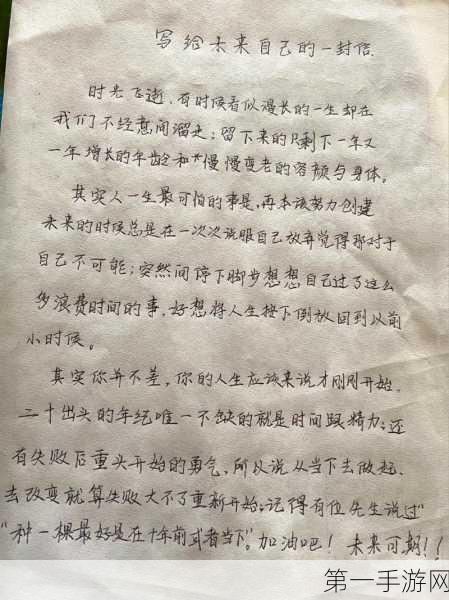 写给未来自己的一封信.
时光飞逝、有时候看似漫长的一生却在
我们不经意间溜走；留下来的只剩下一年又
一年增长的年龄和慢慢变老的容颜与身体。
其实人一生最可怕的事是,再本该努力创建
未来的时候总是在一次次说服自己放弃觉得那对于
自己不可能；突然间停下脚步想想自己过了这么
多浪费时间的事、好想将人生按下倒放回到以前
小时候。
其实你并不差、你的人生应该来说才刚刚开始.
二十出头的年纪唯一不缺的就是时间跟精力；还
有失败后重头开始的勇气、所以说从当下去做起.
去改变就算失败大不了重新开始；记得有位先生说过"
"种一棵最好是在十年前或者当下"。加油吧！未来可期！！
第一手游网